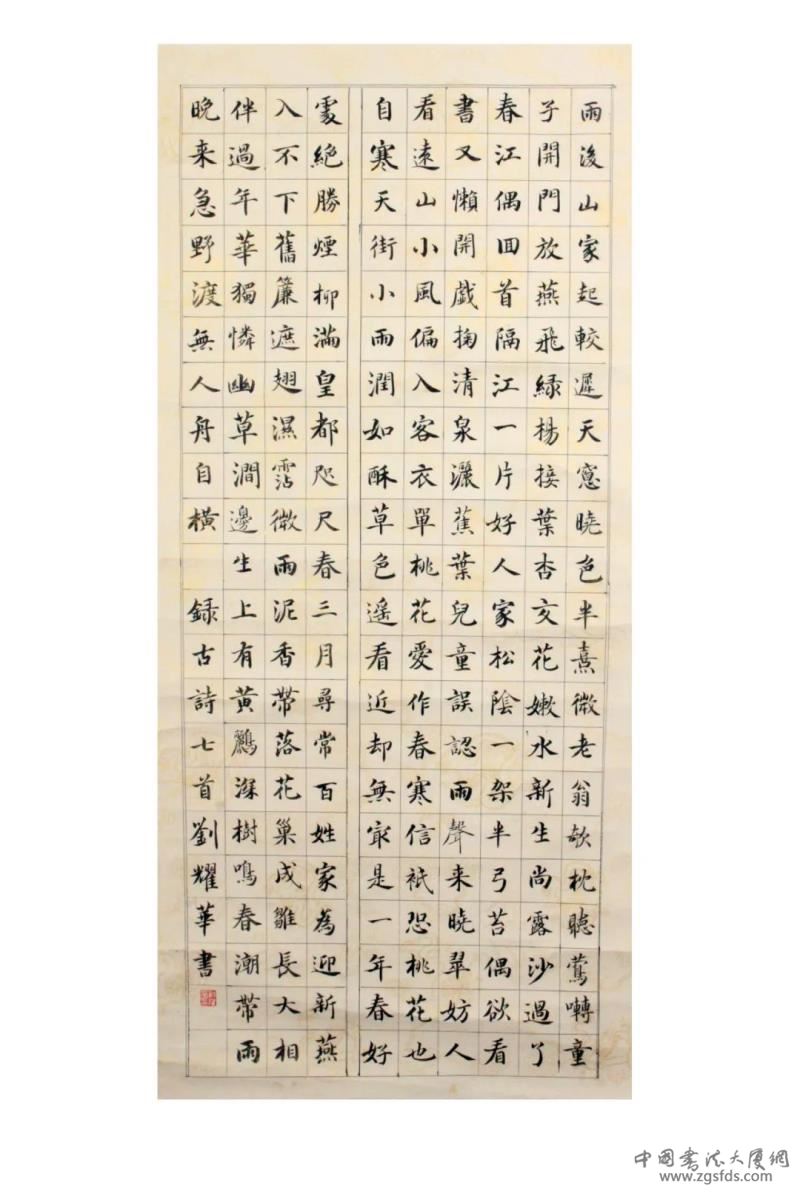 雨後山家起較遲天窓曉色半熹微老翁欹枕聽鶯囀童
子開門放燕飛緑楊接葉杏交花嫩水新生尚露沙過了
春江偶回首隔江一片好人家松陰一架半弓苔偶欲看
書又懶開戲掬清泉灑蕉葉兒童誤認雨聲来曉翠妨人
看遠山小風偏入客衣單桃花愛作春寒信衹恐桃花也
自寒天街小雨潤如酥草色遥看近却無冣是一年春好
處絕勝煙柳滿皇都咫尺春三月尋常百姓家為迎新燕
入不下舊簾遮翅濕霑微雨泥香帶落花巢成雛長大相
伴過年華獨憐幽草澗邊生上有黃鸝深樹鳴春潮帶雨
晚来急野渡無人舟自橫 録古詩七首劉耀華書
中国書法大廈網
www.zgsfds.com